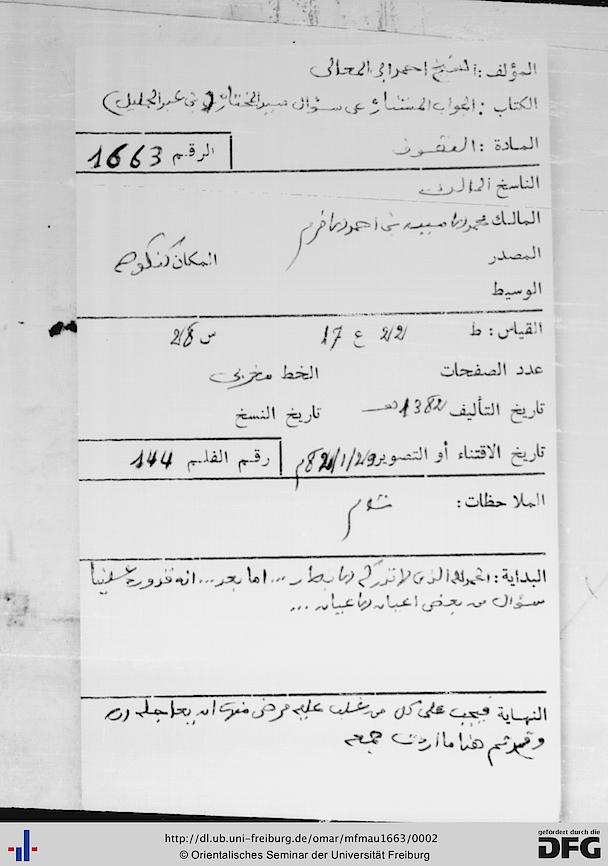 المؤلف: الشيخ احمد ابي المعالى
الكتاب: الجواب المستشار عن سؤال سيد المختار بن عبد الجليل
المادة: التصوف
الرقم 1663
الناسخ المالك
المالك محمد بن احمد
المصدر المكان كنكوصه
الوسيط
القياس: ط 22 ع 17 س 28
عدد الصفحات الخط مغربي
تاريخ التأليف 1382هـ تاريخ النسخ
تاريخ الاقتناء أو التصوير 29/1/82م رقم الفلم 144
الملاحظات: تام
البداية: الحمد لله الذي لا تدركه ... اما بعد ... انه قد ورد علينا
سؤال من بعض اعيان
النهاية فيجب على كل من غلب عليه مرض منها ان يعاجله
هنا ما اردت جمعه
http://dl.ub.uni-freiburg.de/omar/mfmau1663/0002
© Orientalisches Seminar der Universität Freiburg
gefördert durch die
DFG